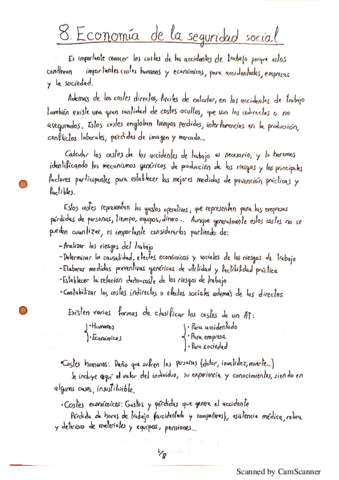 8. Economía de la seguridad social
Es importante conocer los costes de los accidentes de trabajo porque estos
conllevan importantes costes humanos y económicos, para accidentados, empresas
y la sociedad.
Además de los costes directos, fáciles de calcular, en los accidentes de trabajo
también existe una gran cantidad de costes ocultos, que son los indirectos o no
asegurados. Estos costes engloban tiempos perdidos, interferencias en la producción,
conflictos laborales, pérdidas de imagen y mercado...
Calcular los costes de los accidentes de trabajo es necesario, y lo haremos
identificando los mecanismos genéricos de producción de los riesgos y los principales
factores participantes para establecer las mejores medidas de prevención prácticas y
factibles.
Estos costes representan los gastos operativos, que representan para las empresas
pérdidas de personas, tiempo, equipos, dinero... Aunque generalmente estos costes no se
pueden cuantizar, es importante considerarlos partiendo de:
- Analizar los riesgos del trabajo
- Determinar la causalidad, efectos económicos y sociales de los riesgos de trabajo
- Elaborar medidas preventivas genéricas de utilidad y factibilidad práctica
- Establecer la relación daño-coste de los riesgos de trabajo
- Contabilizar los costes indirectos o efectos sociales además de los directos
Existen varias formas de clasificar los costes de un AT:
· Humanos
· Económicos
· Para accidentado
· Para empresa
· Para sociedad
· Costes humanos: Daño que sufren las personas (dolor, invalidez, muerte...)
Se incluye aquí el valor del individuo, su experiencia y conocimientos, siendo en
algunos casos, insustituible.
· Costes económicos: Gastos y pérdidas que genera el accidente
Pérdida de horas de trabajo (accidentado y compañeros), asistencia médica, rotura
y deterioro de materiales y equipos, pensiones...
1/8
Scanned by CamScanner